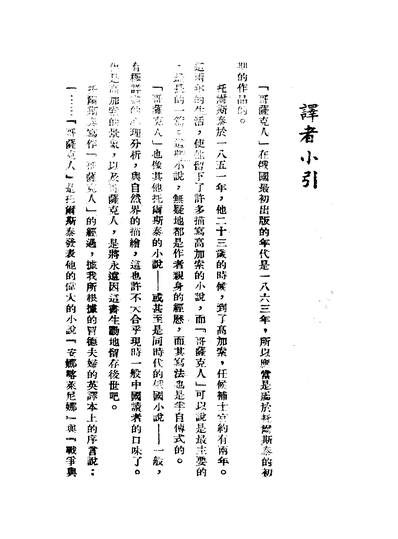 譯者小引
「哥薩克人」在俄國最初出版的年代是一八六三年，所以應當是屬於托爾斯泰的初
期的作品的。
托爾斯泰於一八五一年，他二十三歲的時候，到了高加索，任候補士官約有兩年。
這兩年的生活，使他留下了許多描寫高加索的小說，而「哥薩克人」可以說是最主要的
最長的一篇。這篇小說，無疑地都是作者親身的經歷，而其寫法也是半自傳式的。
「哥薩克人」也像其他托爾斯泰的小說——或甚至是同時代的俄國小說——一般，
有極詳盡的心理分析，與自然界的描繪，這也許不大合乎現時一般中國讀者的口味了。
但是高加索的景象，以及哥薩克人，是將永遠因這書生動地留存後世吧。
托爾斯泰寫作「哥薩克人」的經過，據我所根據的冒德夫婦的英譯本上的序言說：
「……『哥薩克人』是托爾斯泰發表他的偉大的小說『安娜喀萊尼娜』與『戰爭與